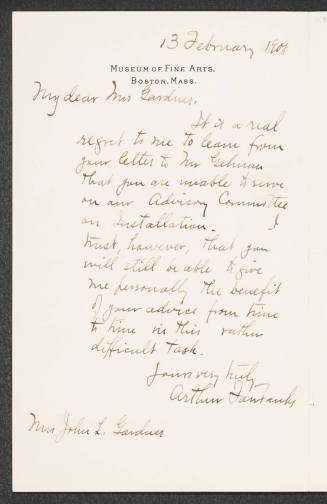 13 February 1908
MUSEUM OF FINE ARTS.
BOSTON, MASS.
My dear Mrs Gardner,
It is a real
regret to me to learn from
your letter to Mr Gilman
that you are unable to serve
on our Advisory Committee
on Installation. I
trust, however, that you
will still be able to give
me personally the benefit
of your advice from time
to time in this rather
difficult task.
Yours very truly
Arthur Fairbanks
Mrs John L. Gardner